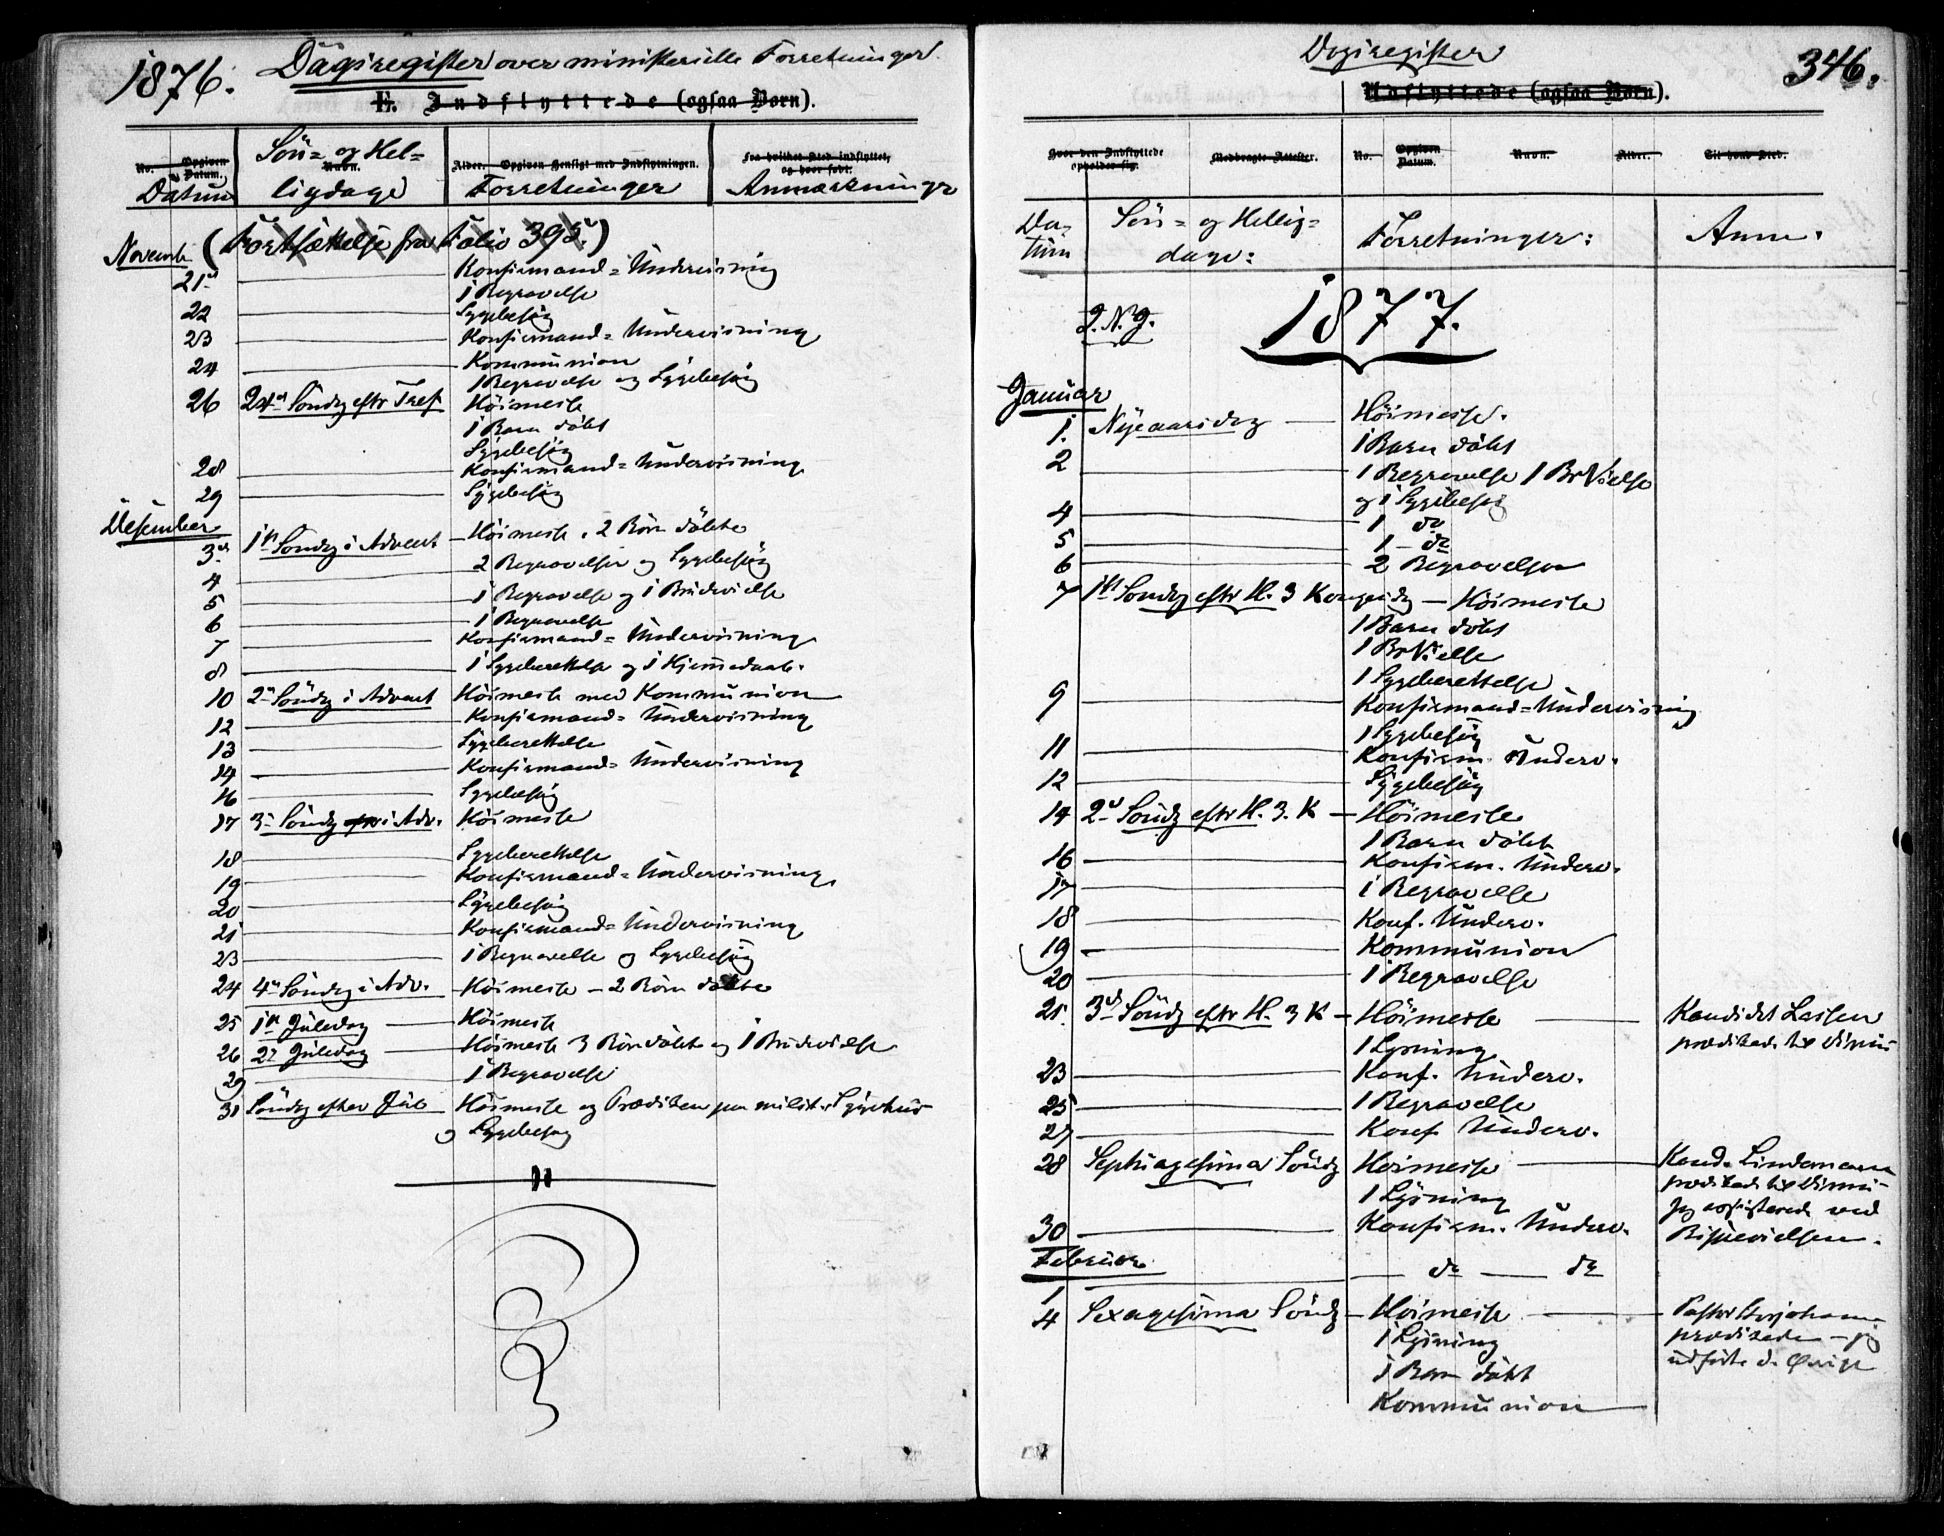 1876. Dagsregister over ministerielle Forretninger
E. Indflyttede (ogsaa Børn).
No. Opgiven Datum. Navn. Alder. Opgiven Hensigt med Indflytningen. Fra hvilket Sted indflyttet, og hvor født.
Datum Søn- og Helligdage Forretninger Anmærkninger
(Fortsættelse fra Folio 395.)
November
21. Konfirmand-Undervisning
1 Begravelse
22 Sygebesøg
23 Konfirmand-Undervisning
24 Kommunion
1 Begravelse og Sygebesøg
26 24de Søndg eftr Tref. Høimesse
1 Barn døbt
Sygebesøg
28 Konfirmand-Undervisning
29 Sygebesøg
Desember
3. 1ste Søndg i Advent Høimesse. 2 Børn døbte
4 2 Begravelser og Sygebesøg
5 1 Begravelse og 1 Brudevielse
6 1 Begravelse
7 Konfirmand-Undervisning
8 1 Sygeberettelse og 1 Hjemmedaab.
10 2 Søndg i Advent Høimesse med Kommunion
12 Konfirmand-Undervisning
13 Sygeberettelse
14 Konfirmand-Undervisning
16 Sygebesøg
17 3 Søndg i Adv. Høimesse
18 Sygeberettelse
19 Konfirmand-Undervisning
20 Sygebesøg
21 Konfirmand-Undervisning
23 1 Begravelse og Sygebesøg
24 4 Søndg i Adv. Høimesse – 2 Børn døbte
25 1ste Juledag Høimesse
26 2 Juledag Høimesse 3 Børn døbt og 1 Brudevielse
29 1 Begravelse
31 Søndg efter Jul Høimesse og Prædiken paa milit. Sygehus
og Sygebesøg
Dagsregister 346.
Udflyttede (ogsaa Børn).
Hvor den Indflyttede opholder sig. Medbragte Attester. No. Opgiven Datum. Navn. Alder. Til hvad Sted.
Datum Søn- og Helligdage: Forretninger: Anm.
1877.
Januar
1. Nytaarsdag Høimesse.
1 Barn døbt
2 1 Begravelse 1 BrVielse
og 1 Sygebesøg
4 1 do
5 1 – do
6 2 Begravelser
7 1ste Søndg eftr H. 3 Kongerdg – Høimesse
1 Barn døbt
1 BrVielse
1 Sygeberettelse
9 Konfirmand-Undervisning
1 Sygebesøg
11 Konfirm. Underv.
12 Sygebesøg
14 2 Søndg eftr H. 3. K – Høimesse
1 Barn døbt
16 Konfirm. Underv.
17 1 Begravelse
18 Konf. Underv.
19 Kommunion
20 1 Begravelse
21. 3 Søndg eftr H. 3 K – Høimesse Kandidat Lassen
1 Lysning
23 Konf. Underv.
25 1 Begravelse
27 Konf Underv.
28 Septuagesima Søndg Høimesse Kand. Lindemann
1 Lysning
jeg assisterede ved
30 Konfirm. Underv. Bispevielsen.
Februar
1 do do
4 Sexagesima Søndg – Høimesse Pastor
1 Lysning prædikede – jeg
1 Barn døbt udførte d. Øvrige
Kommunion